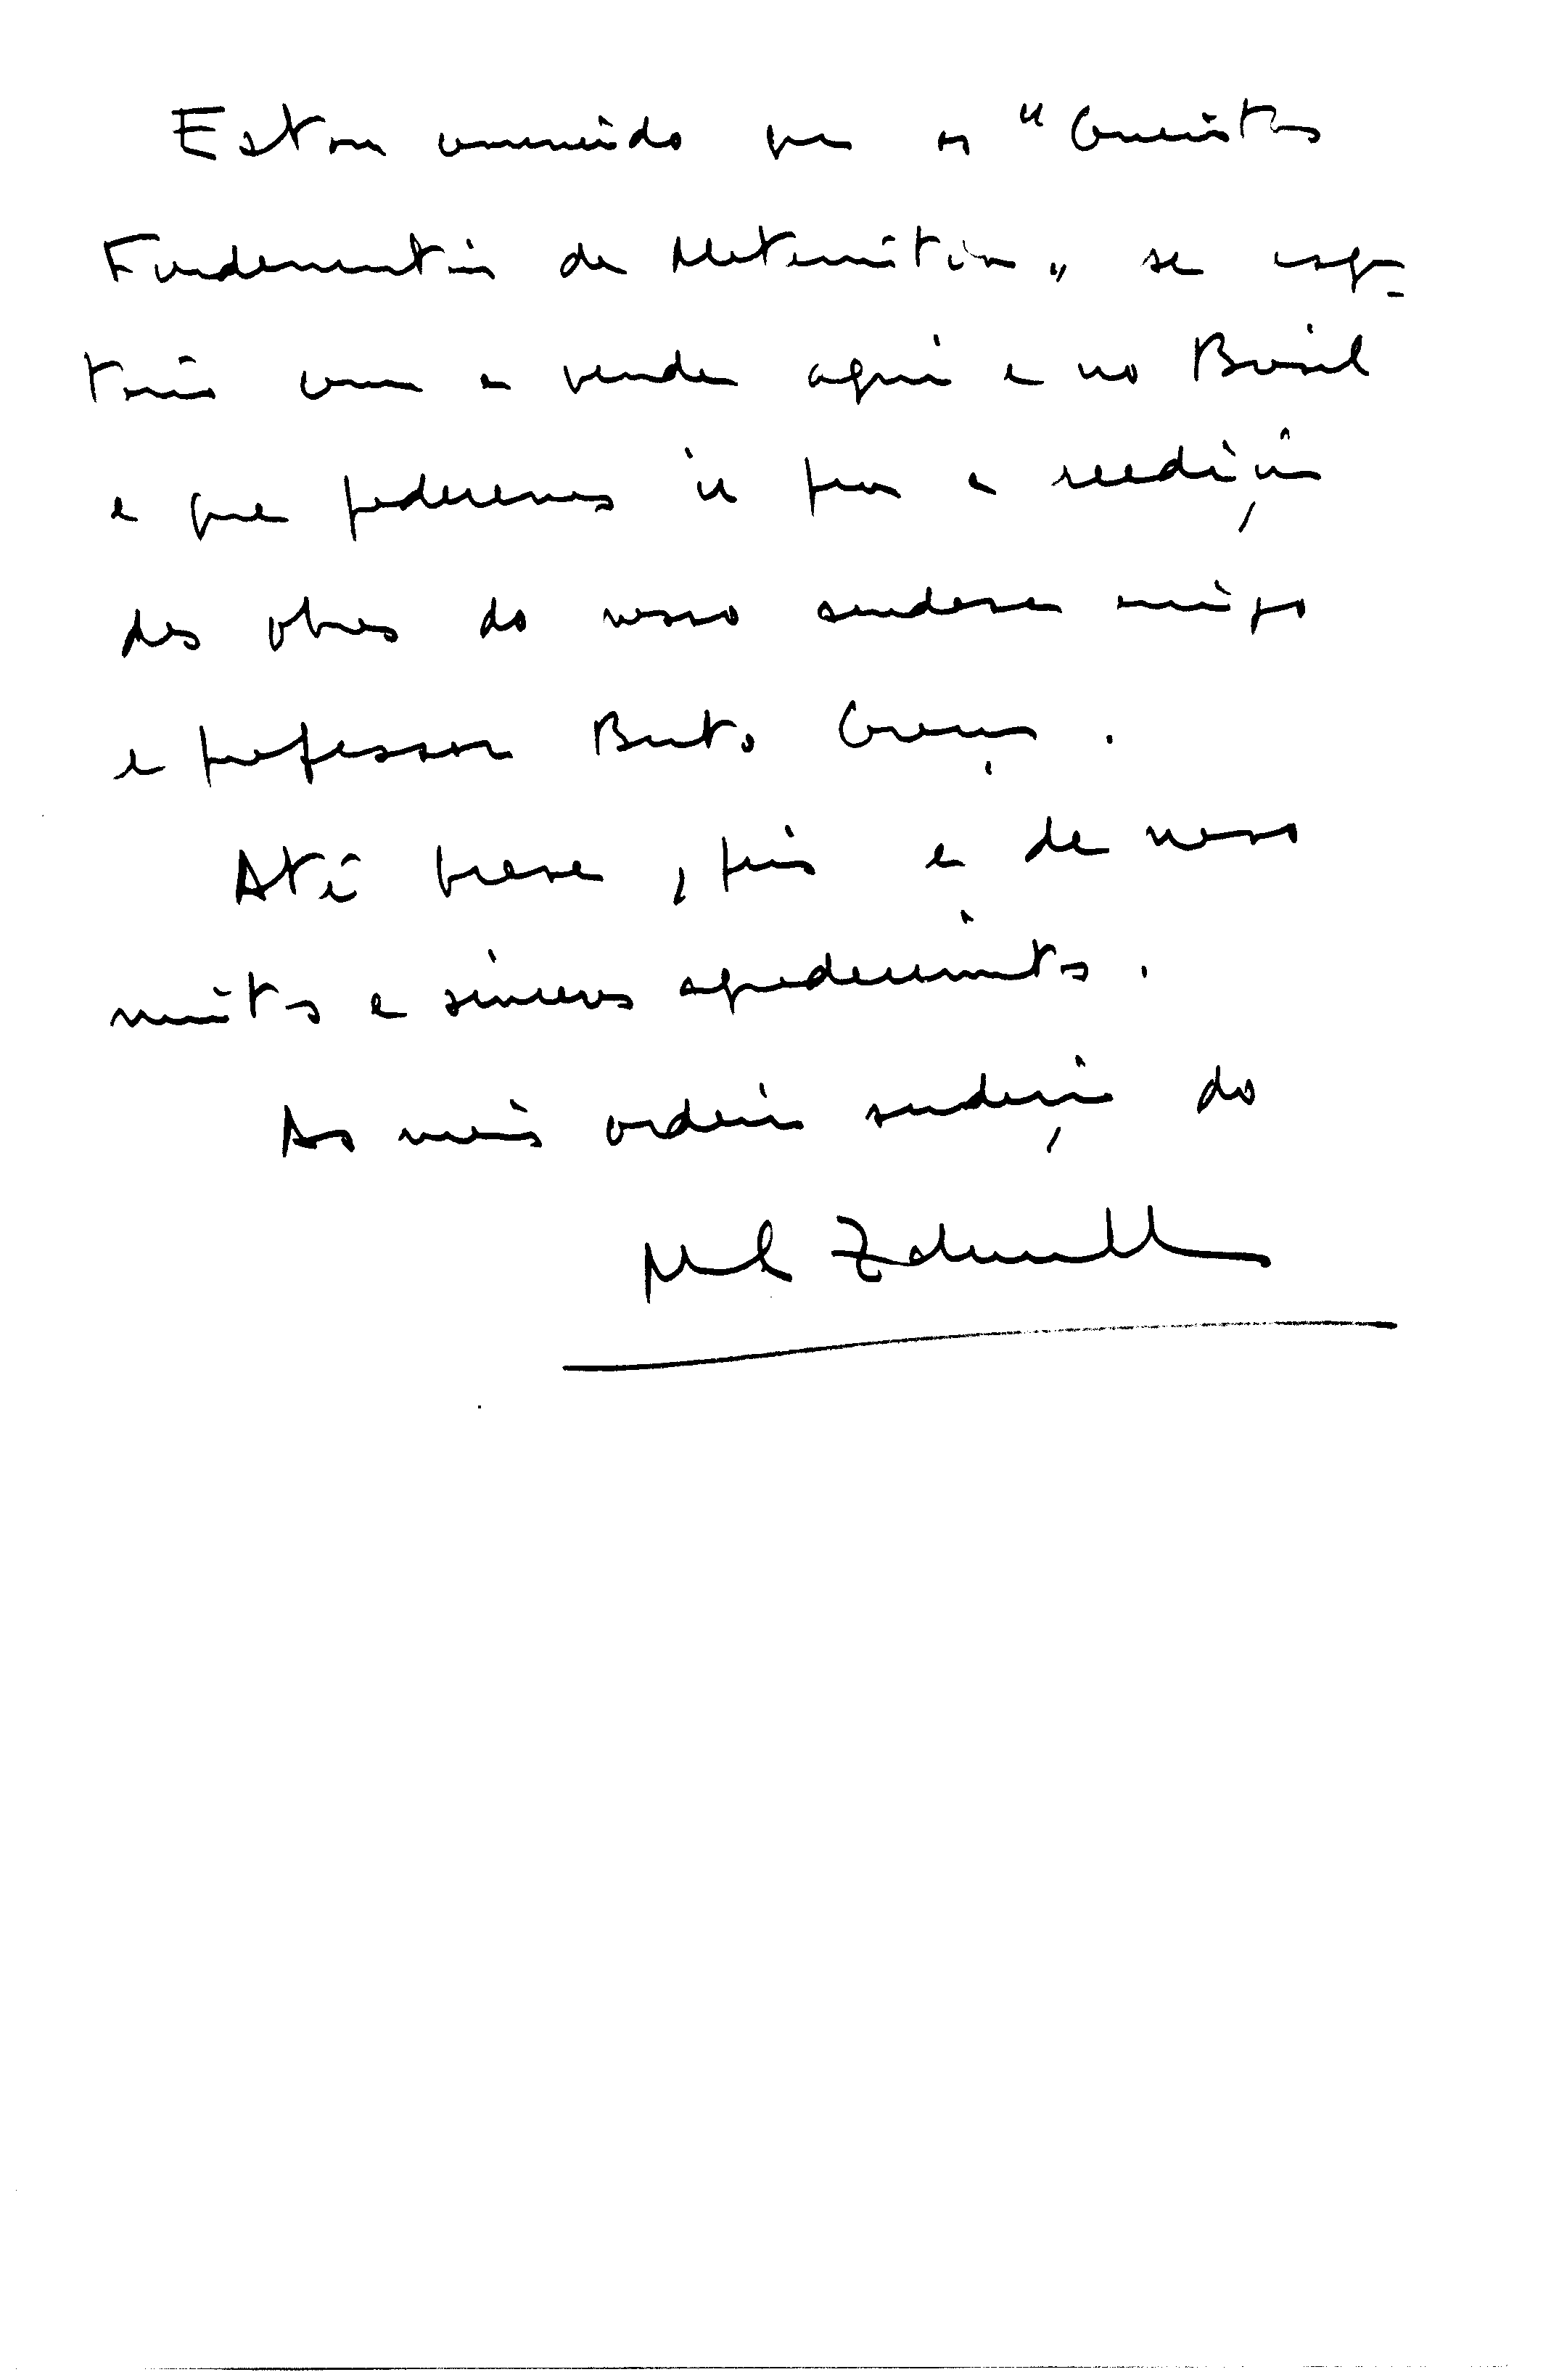 Estou convencido que os "Conceitos
Fundamentais da Matemática" se esgo-
tarão com a venda aqui e no Brasil
e que poderemos ir para a reedição
das obras do nosso saudoso amigo
e professor Bento Caraça.
Até breve, pois e de novo
muitos e sinceros agradecimentos.
As mais cordiais saudações do